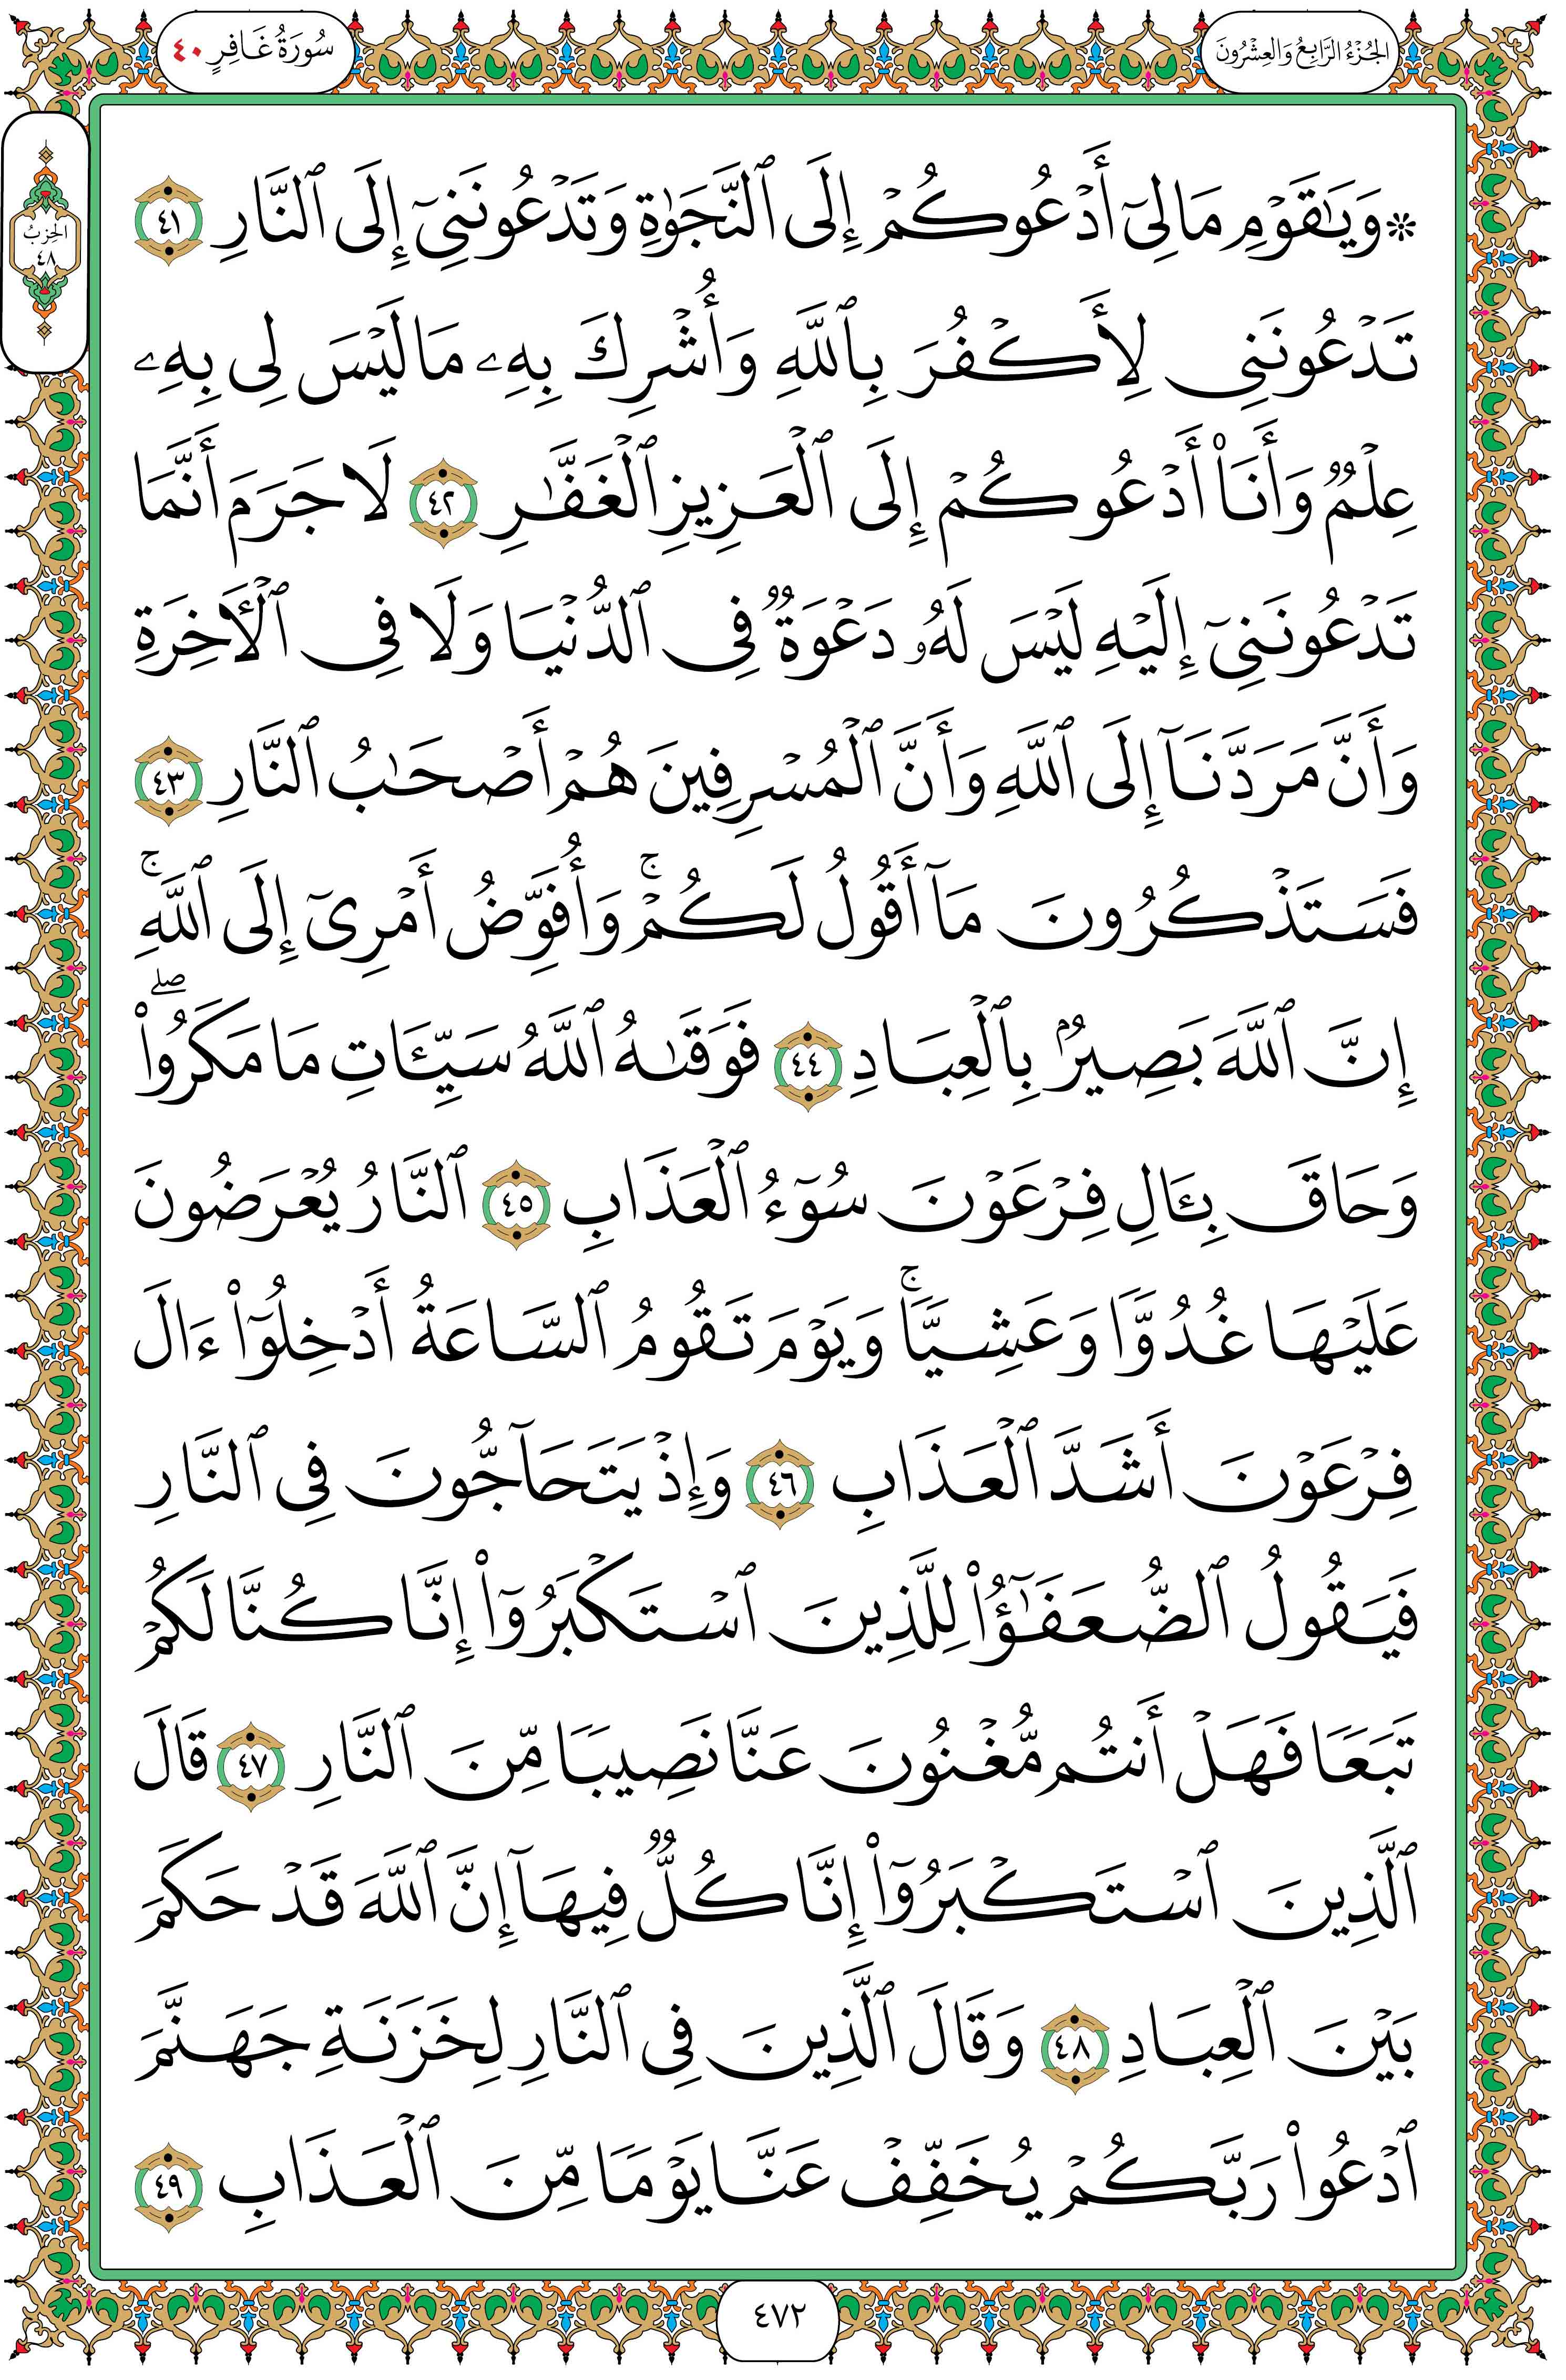 الجُزْءُ الرَّابِعُ وَالعِشْرُونَ
سُورَةُ غَافِرٍ ٤٠
الحِزْبُ
٤٨
۞ وَيَٰقَوْمِ مَا لِىٓ أَدْعُوكُمْ إِلَى ٱلنَّجَوٰةِ وَتَدْعُونَنِىٓ إِلَى ٱلنَّارِ ٤١
تَدْعُونَنِى لِأَكْفُرَ بِٱللَّهِ وَأُشْرِكَ بِهِۦ مَا لَيْسَ لِى بِهِۦ
عِلْمٌ وَأَنَا۠ أَدْعُوكُمْ إِلَى ٱلْعَزِيزِ ٱلْغَفَّٰرِ ٤٢ لَا جَرَمَ أَنَّمَا
تَدْعُونَنِىٓ إِلَيْهِ لَيْسَ لَهُۥ دَعْوَةٌ فِى ٱلدُّنْيَا وَلَا فِى ٱلْءَاخِرَةِ
وَأَنَّ مَرَدَّنَآ إِلَى ٱللَّهِ وَأَنَّ ٱلْمُسْرِفِينَ هُمْ أَصْحَٰبُ ٱلنَّارِ ٤٣
فَسَتَذْكُرُونَ مَآ أَقُولُ لَكُمْ ۚ وَأُفَوِّضُ أَمْرِىٓ إِلَى ٱللَّهِ ۚ
إِنَّ ٱللَّهَ بَصِيرٌۢ بِٱلْعِبَادِ ٤٤ فَوَقَىٰهُ ٱللَّهُ سَيِّـَٔاتِ مَا مَكَرُوا۟ ۖ
وَحَاقَ بِـَٔالِ فِرْعَوْنَ سُوٓءُ ٱلْعَذَابِ ٤٥ ٱلنَّارُ يُعْرَضُونَ
عَلَيْهَا غُدُوًّا وَعَشِيًّا ۚ وَيَوْمَ تَقُومُ ٱلسَّاعَةُ أَدْخِلُوٓا۟ ءَالَ
فِرْعَوْنَ أَشَدَّ ٱلْعَذَابِ ٤٦ وَإِذْ يَتَحَآجُّونَ فِى ٱلنَّارِ
فَيَقُولُ ٱلضُّعَفَٰٓؤُا۟ لِلَّذِينَ ٱسْتَكْبَرُوٓا۟ إِنَّا كُنَّا لَكُمْ
تَبَعًا فَهَلْ أَنتُم مُّغْنُونَ عَنَّا نَصِيبًا مِّنَ ٱلنَّارِ ٤٧ قَالَ
ٱلَّذِينَ ٱسْتَكْبَرُوٓا۟ إِنَّا كُلٌّ فِيهَآ إِنَّ ٱللَّهَ قَدْ حَكَمَ
بَيْنَ ٱلْعِبَادِ ٤٨ وَقَالَ ٱلَّذِينَ فِى ٱلنَّارِ لِخَزَنَةِ جَهَنَّمَ
ٱدْعُوا۟ رَبَّكُمْ يُخَفِّفْ عَنَّا يَوْمًا مِّنَ ٱلْعَذَابِ ٤٩
٤٧٢